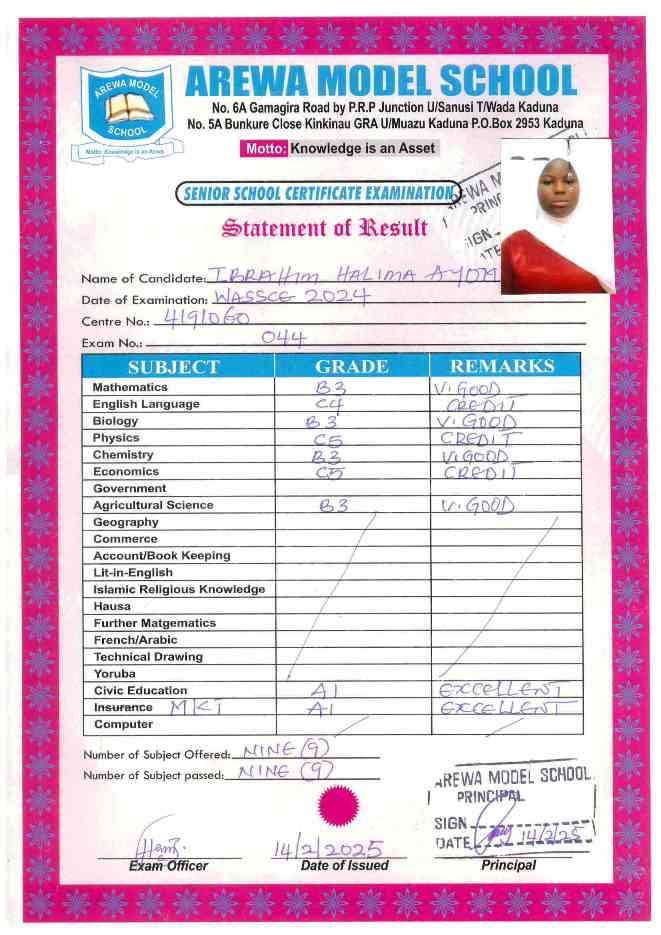 AREWA MODEL
SCHOOL
Motto: Knowledge is an Asset
AREWA MODEL SCHOOL
No. 6A Gamagira Road by P.R.P Junction U/Sanusi T/Wada Kaduna
No. 5A Bunkure Close Kinkinau GRA U/Muazu Kaduna P.O.Box 2953 Kaduna
Motto: Knowledge is an Asset
SENIOR SCHOOL CERTIFICATE EXAMINATION
Statement of Result
Name of Candidate: IBRAHIM HALIMA
Date of Examination: WASSCE 2024
Centre No.: 4191060
Exam No.: 044
SUBJECT GRADE REMARKS
Mathematics B3 V.GOOD
English Language C4 CREDIT
Biology B3 V.GOOD
Physics C5 CREDIT
Chemistry B3 V.GOOD
Economics C5 CREDIT
Government
Agricultural Science B3 V.GOOD
Geography
Commerce
Account/Book Keeping
Lit-in-English
Islamic Religious Knowledge
Hausa
Further Matgematics
French/Arabic
Technical Drawing
Yoruba
Civic Education A1 EXCELLENT
Insurance MKT A1 EXCELLENT
Computer
Number of Subject Offered: NINE (9)
Number of Subject passed: NINE (9)
AREWA MODEL SCHOOL
PRINCIPAL
SIGN
DATE 14/2/25
14/2/2025
Exam Officer Date of Issued Principal